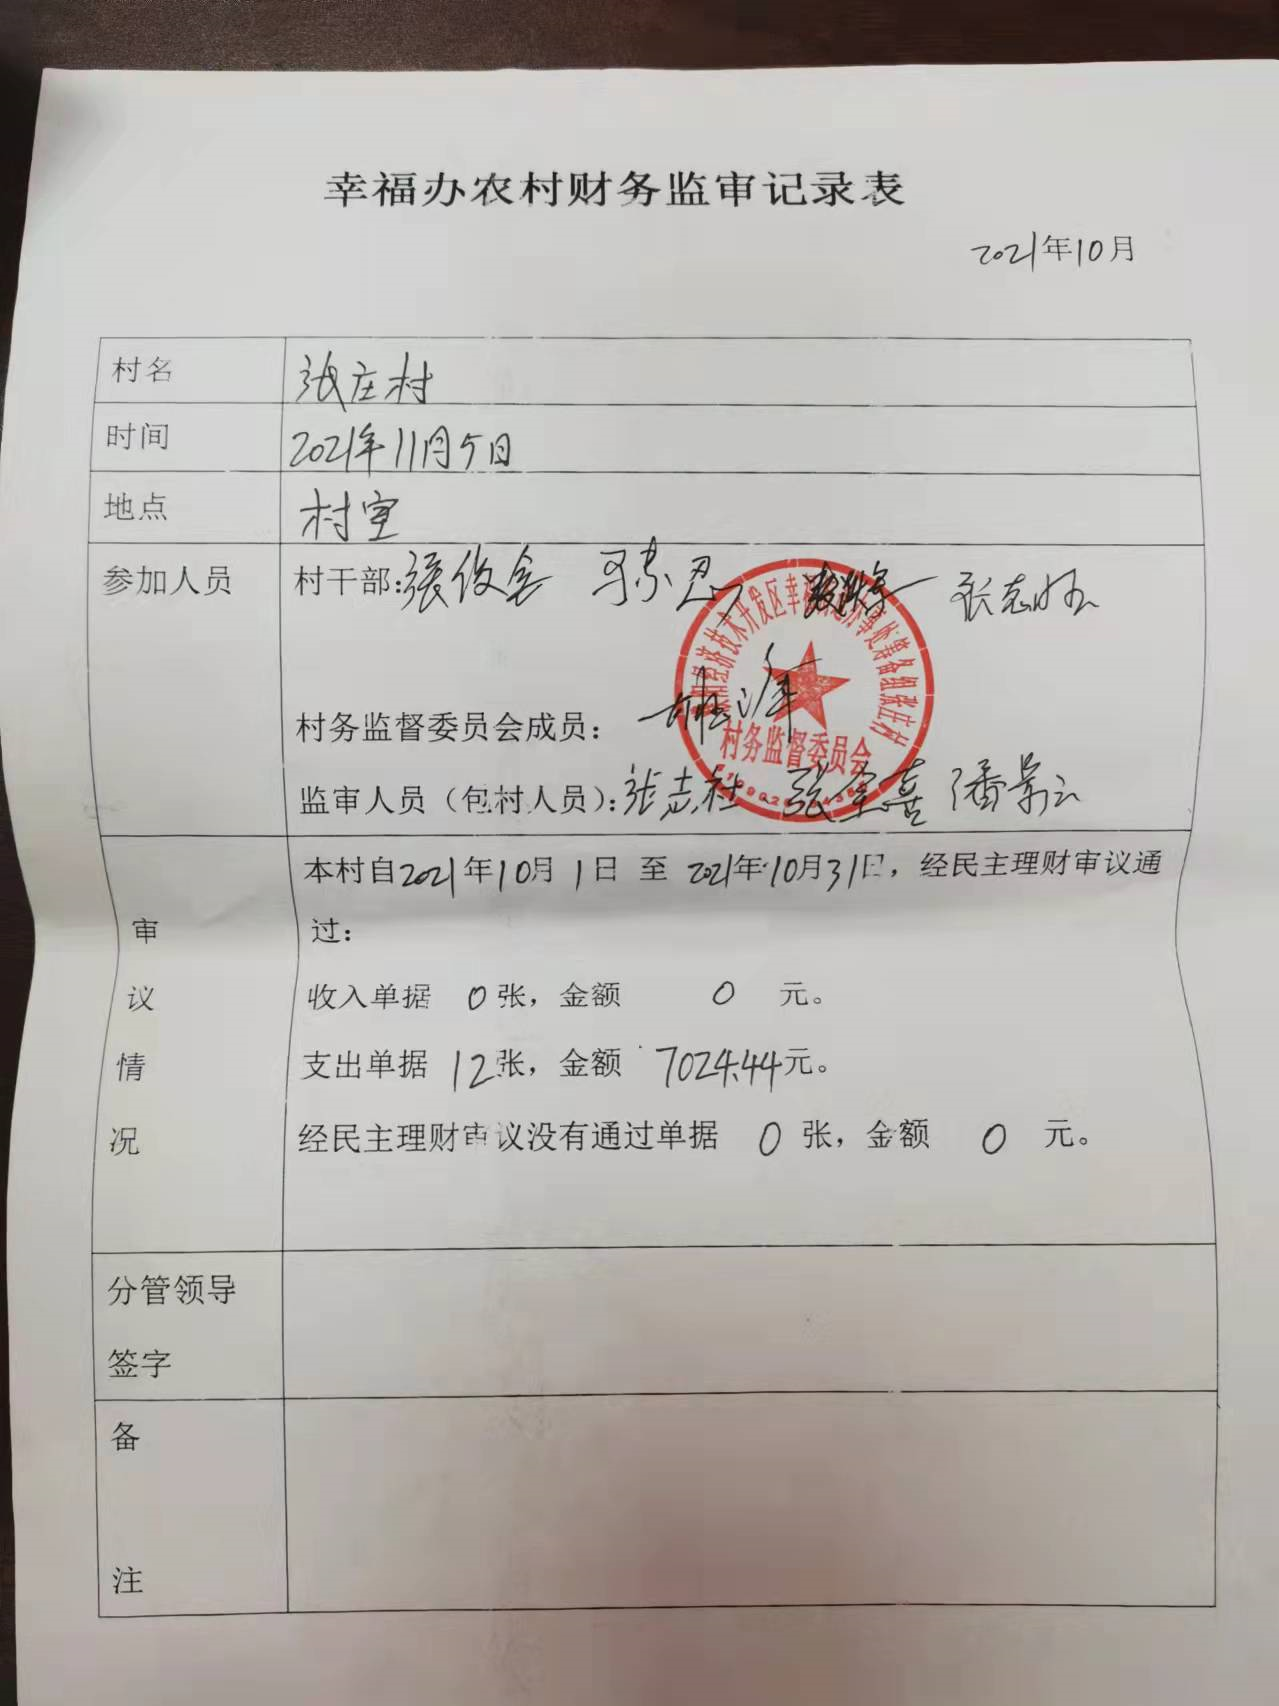 幸福办农村财务监审记录表
2021年10月
村名 张庄村
时间 2021年11月5日
地点 村室
参加人员 村干部:张俊
张志
村务监督委员会成员:
村务监督委员会
监审人员（包村人员）:张志社 张全喜 潘景云
本村自2021年10月1日 至 2021年10月31日，经民主理财审议通
审 过:
议 收入单据 0张，金额 0 元。
情 支出单据 12张，金额 7024.44元。
况 经民主理财审议没有通过单据 0 张，金额 0 元。
分管领导
签字
备
注